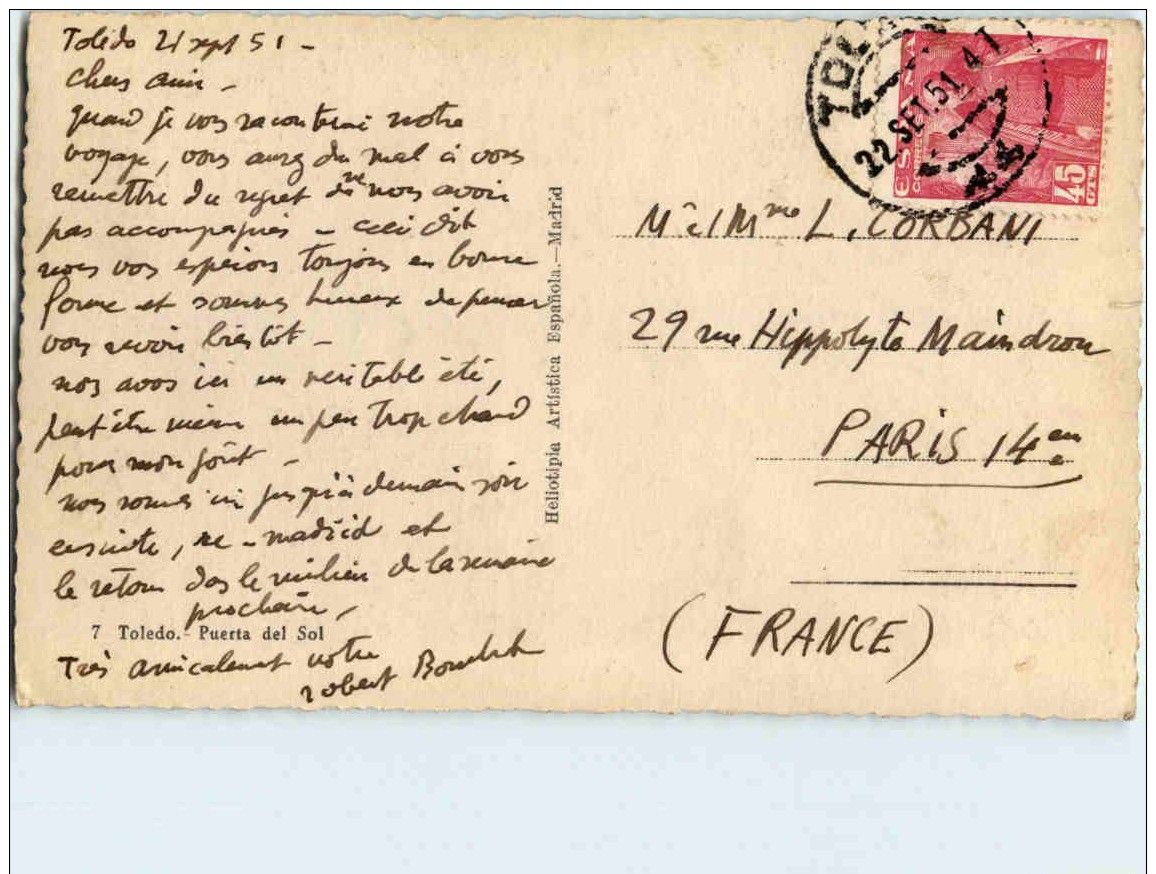 Toledo 21 sept 51 -
chers amis -
quand je vous raconterai notre
voyage, vous aurez du mal à vous
remettre du regret de ne nous avoir
pas accompagnés - ceci dit
nous vos espérons toujours en bonne
forme et sommes heureux de penser
vous revoir bientôt -
nos avos ici un veritable été,
peut être même un peu trop chaud
pour mon goût -
nos sommes ici jusqu'à demain soir
ensuite, madrid et
le retour dans le milieu de la semaine
prochaine -
7 Toledo.- Puerta del Sol
Très amicalement votre
robert
Heliotipia Artística Española.—Madrid
TOL
22 SET. 51. 4 T
ESPAÑA
CORREOS
45
CTS
Mr et Mme L. CORBANI
29 rue Hippolyte Maindron
PARIS 14em
(FRANCE)